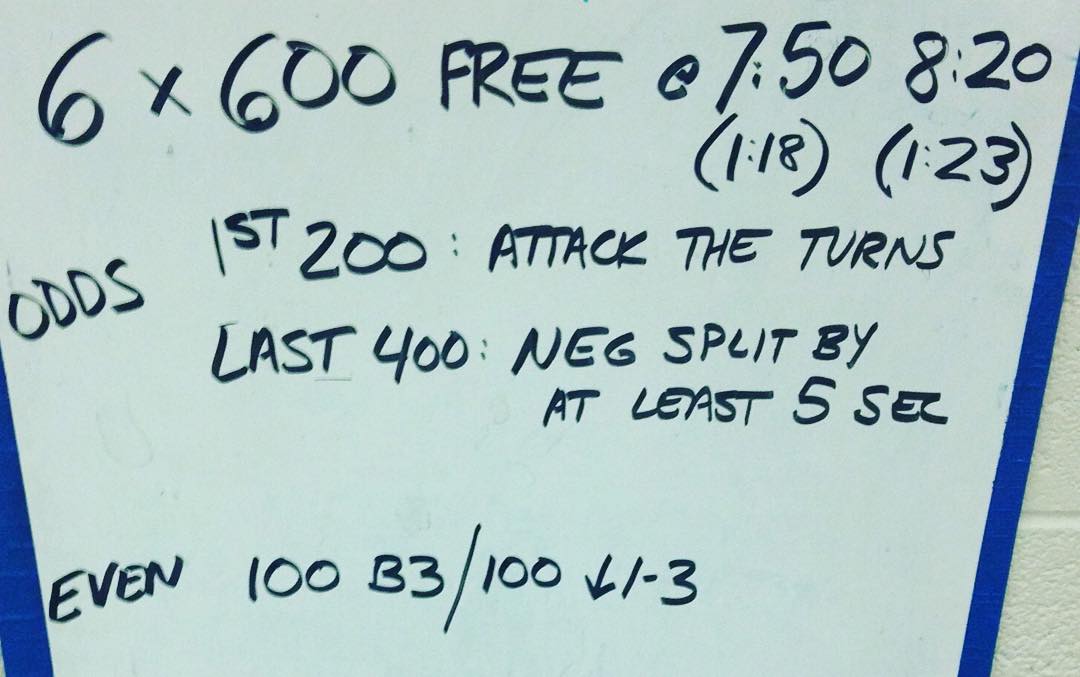 6 x 600 FREE @ 7:50 8:20
(1:18) (1:23)
ODDS 1ST 200: ATTACK THE TURNS
LAST 400: NEG SPLIT BY
AT LEAST 5 SEC
EVEN 100 B3/100 ↓1-3